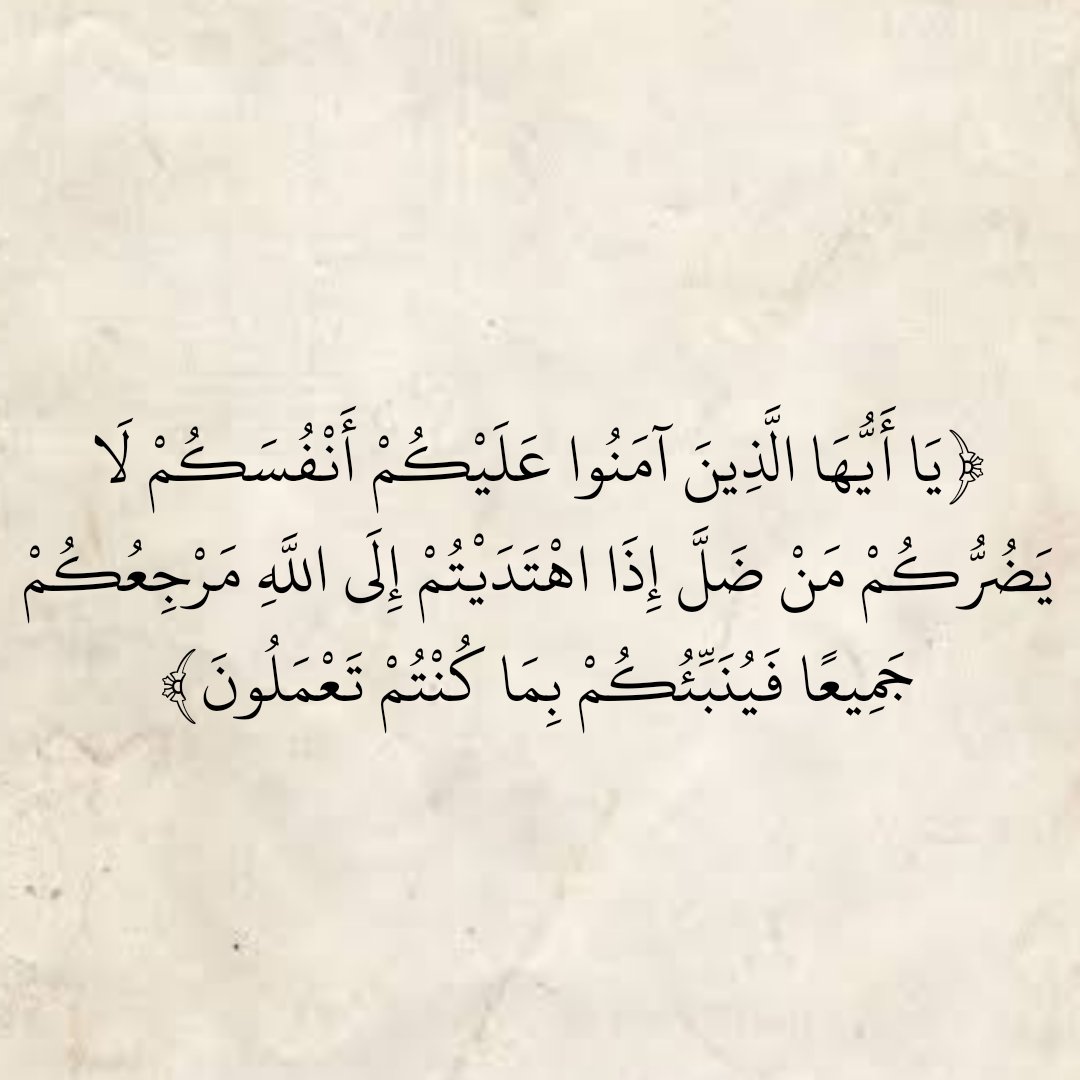 ﴿يَا أَيُّهَا الَّذِينَ آمَنُوا عَلَيْكُمْ أَنْفُسَكُمْ لَا
يَضُرُّكُمْ مَنْ ضَلَّ إِذَا اهْتَدَيْتُمْ إِلَى اللَّهِ مَرْجِعُكُمْ
جَمِيعًا فَيُنَبِّئُكُمْ بِمَا كُنْتُمْ تَعْمَلُونَ﴾